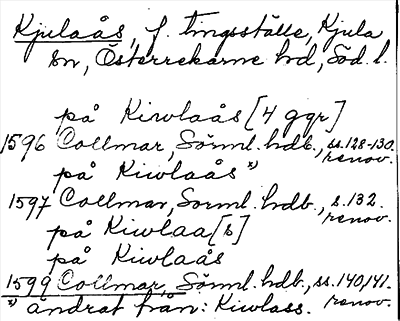 Kjulaås, f. tingsställe, Kjula
sn, Österrekarne hd, Söd. l.
på Kiwlaås [4 ggr]
1596 Collmar, Sörml. hdb., ss. 128-130.
renov.
på Kiwlaås *)
1597 Collmar, Sorml. hdb., s. 132.
renov.
på Kiwlaa[s]
på Kiwlaås
1599 Collmar, Sörml. hdb., ss. 140, 141.
renov.
*) ändrat från: Kiwlass.